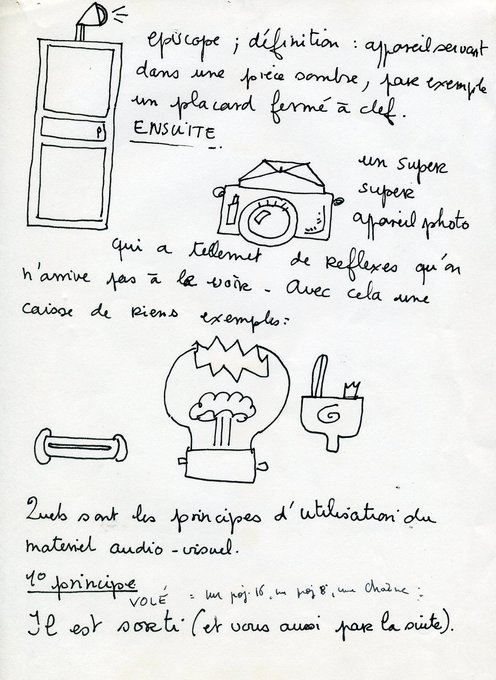 episcope ; définition : appareil servant
dans une pièce sombre, par exemple
un placard fermé à clef.
ENSUITE.
un super
super
appareil photo
qui a tellemet de reflexes qu'on
n'arrive pas à le voir - Avec cela une
caisse de riens exemples :
G
Quels sont les principes d'utilisation du
materiel audio-visuel.
1º principe
VOLÉ = un proj. 16, un proj 8, une chaîne :
Il est sorti (et vous aussi par la suite).